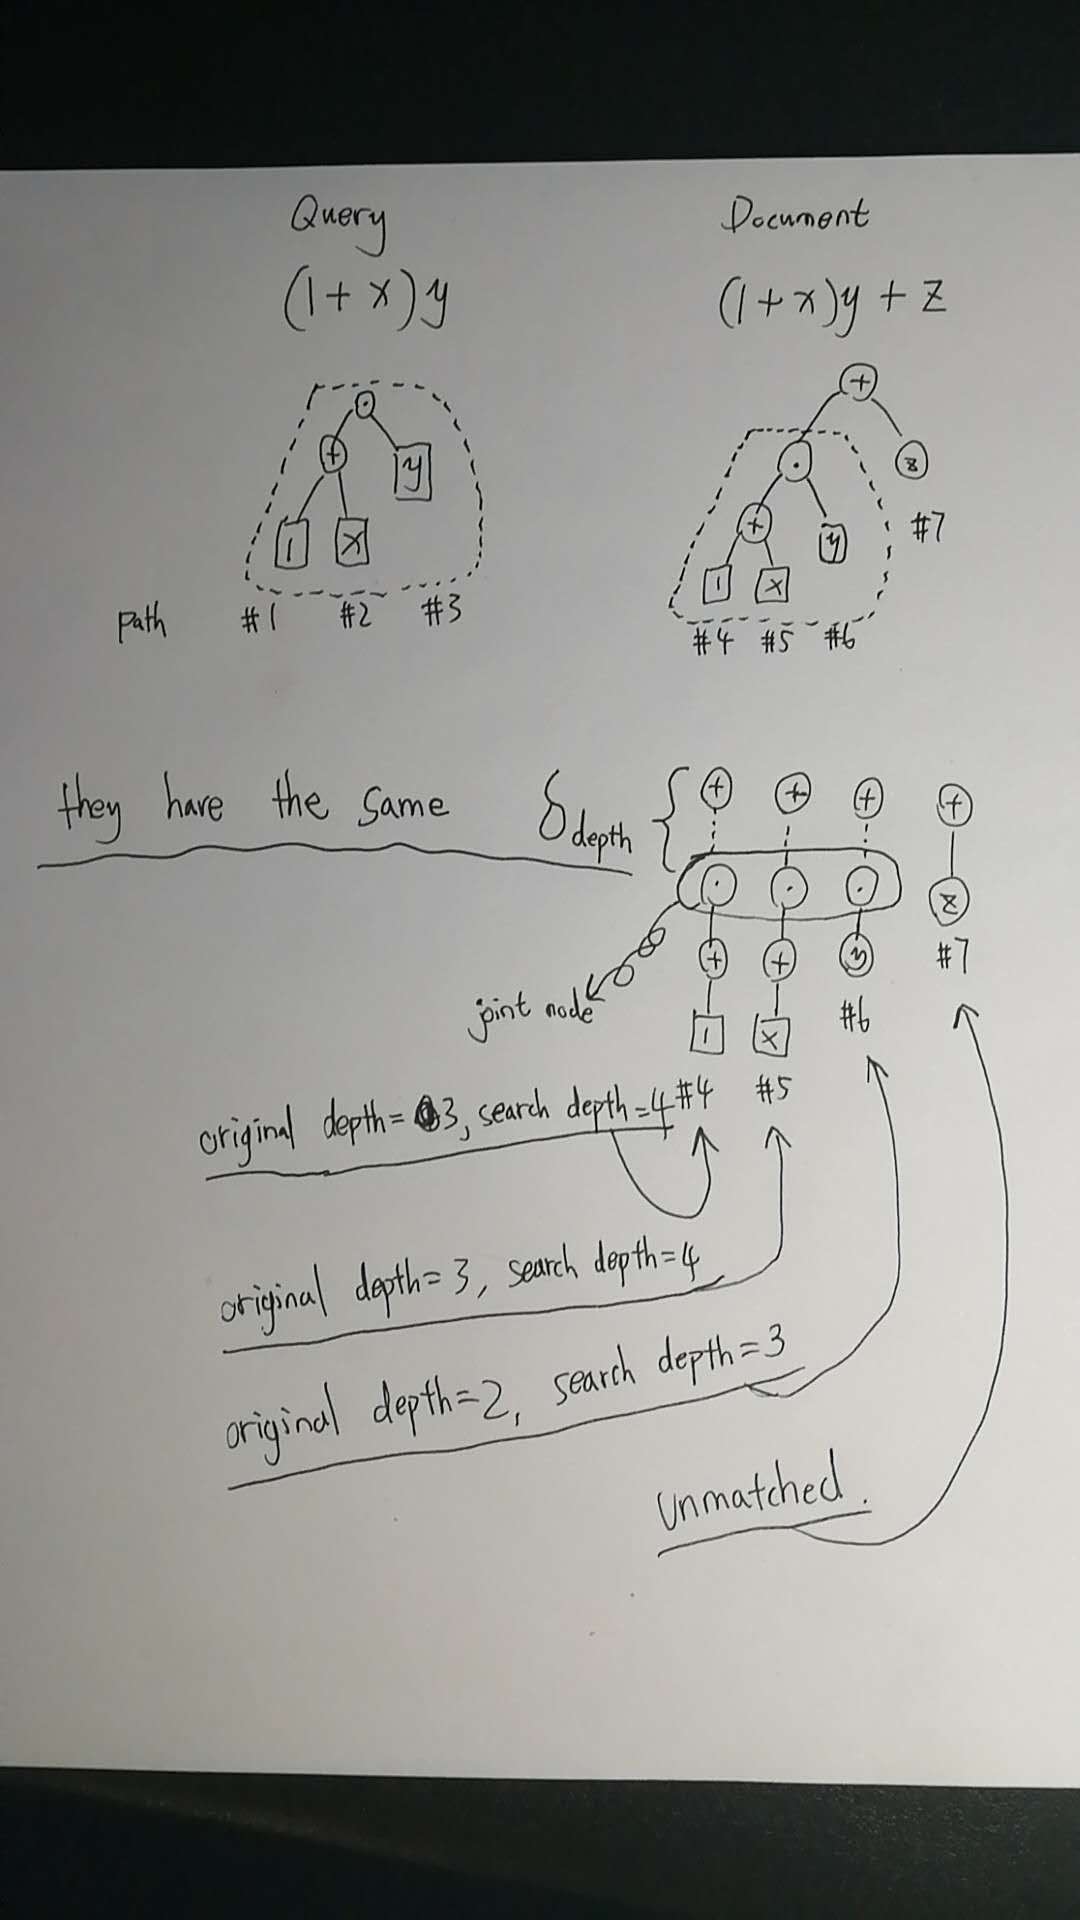 Query
Document
(1+x)y
(1+x)y+z
+
·
·
z
+
y
+
y
#7
1
x
1
x
path #1 #2 #3
#4 #5 #6
they have the same δdepth {
+ + + +
· · · z
+ + y #7
joint node
1 x #6
original depth=3, search depth=4 #4 #5
original depth=3, search depth=4
original depth=2, search depth=3
unmatched.